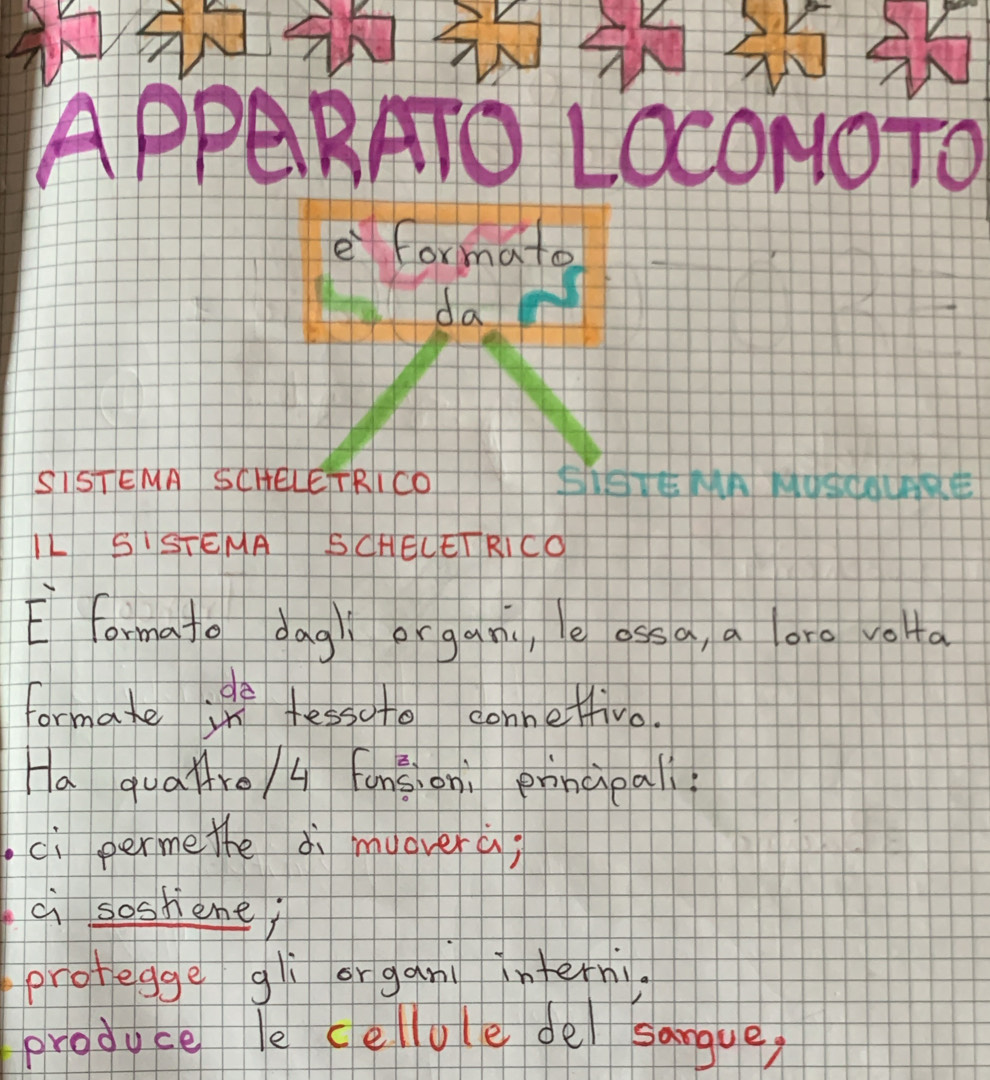 APPARATO LOCOMOTO
è formato
da
SISTEMA SCHELETRICO SISTEMA MUSCOLARE
IL SISTEMA SCHELETRICO
È formato dagli organi, le ossa, a loro volta
da
formate in tessuto connettivo.
Ha quattro/4 funzioni principali:
• ci permette di muoverci;
• ci sostiene;
• protegge gli organi interni.
• produce le cellule del sangue,